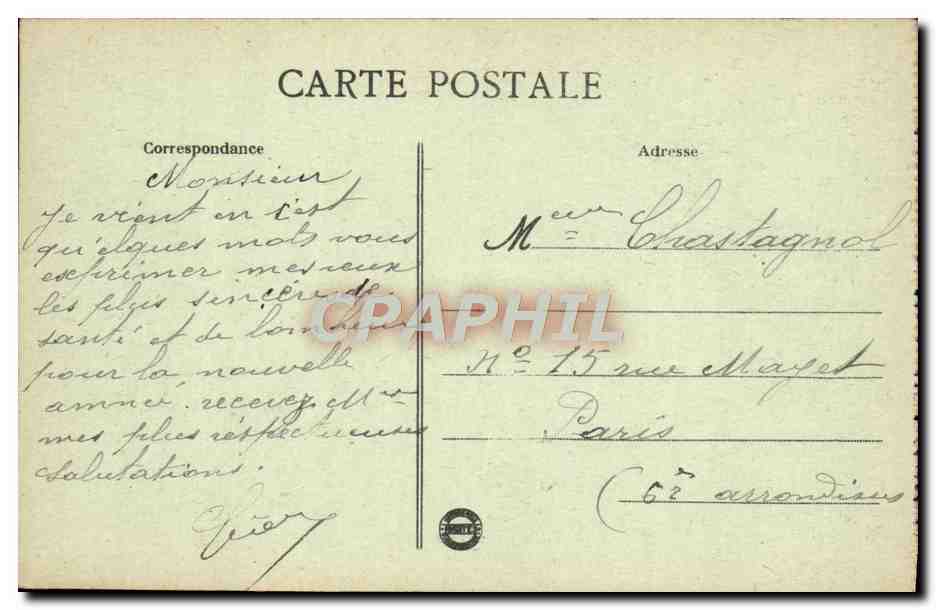 CARTE POSTALE
Correspondance
Adresse
Monsieur
Je vient en c'est
qu'elques mots vous
exprimer mes veux
les plus sincére de
santé et de bonheur
pour la nouvelle
annné. recevez Mr
mes plus réspectueuses
salutations.
Meur Chastagnol
No 15 rue Mayet
Paris
(6è arrondisus
CPARAPHIL